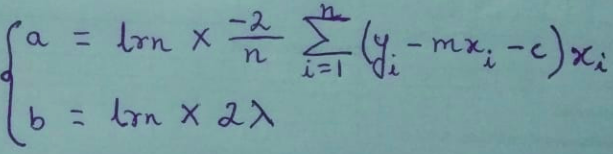 a = lrn × \frac{-2}{n} \sum_{i=1}^{n} (y_i - mx_i - c)x_i
b = lrn × 2λ